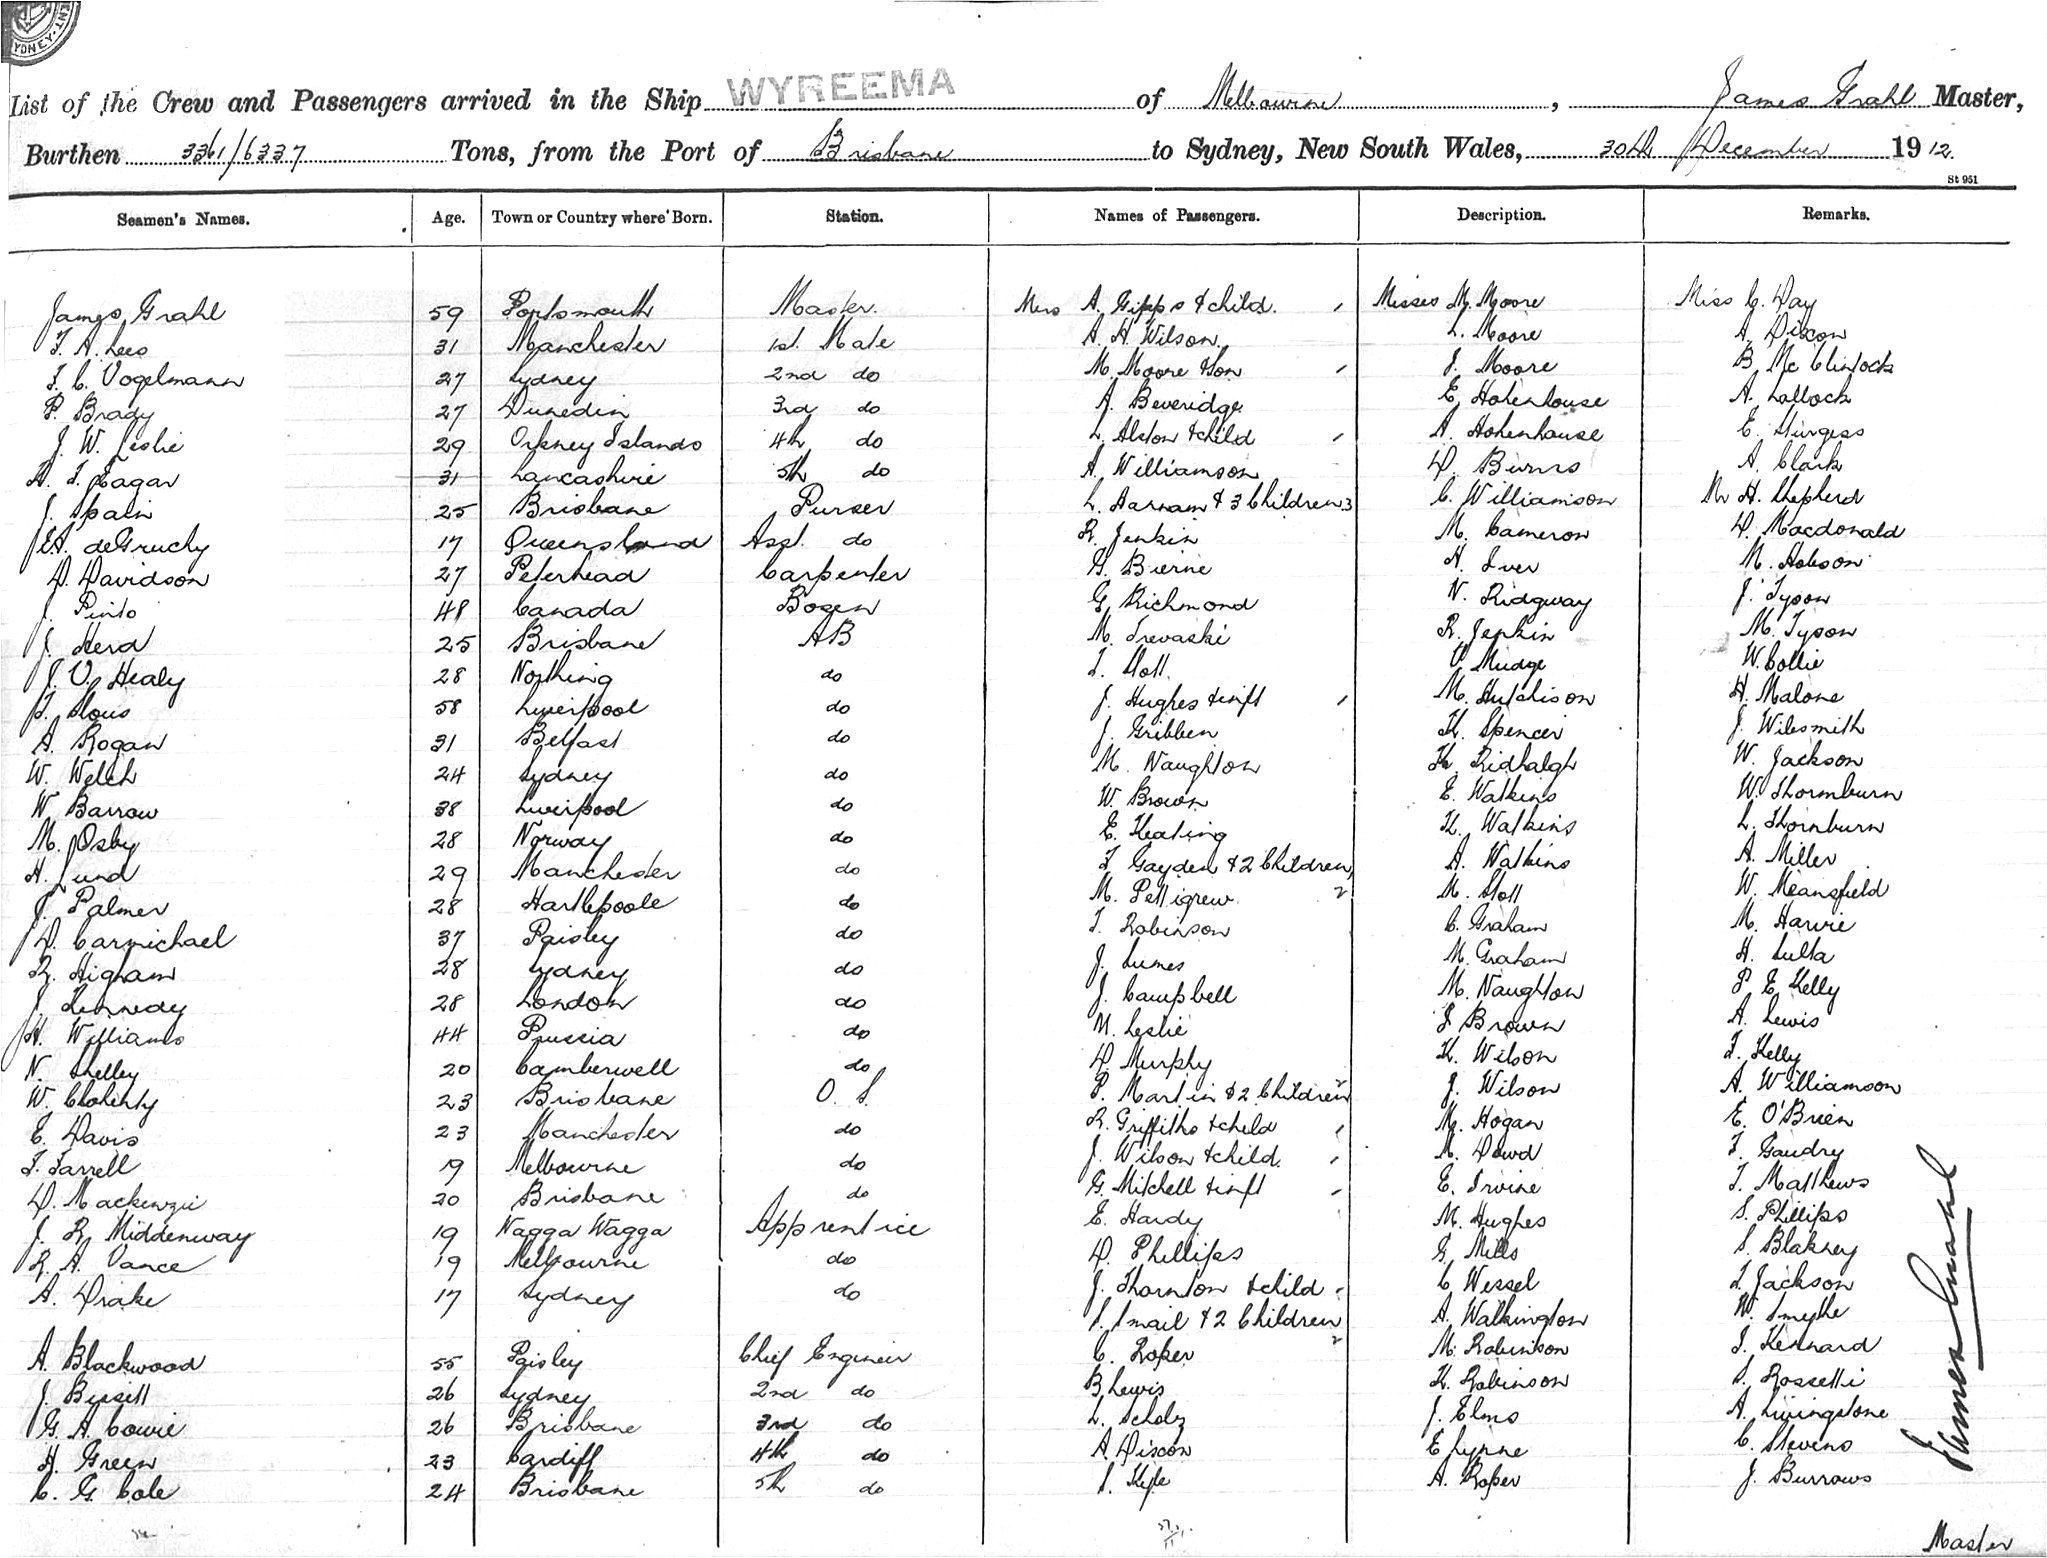 SYDNEY
List of the Crew and Passengers arrived in the Ship WYREEMA of Melbourne, James Grahl Master,
Burthen 3361/6337 Tons, from the Port of Brisbane to Sydney, New South Wales, 30th December 1912.
St 951
Seamen's Names. Age. Town or Country where Born. Station. Names of Passengers. Description. Remarks.
James Grahl 59 Portsmouth Master. Mrs A. Gipps & child. Misses M. Moore Miss C. Day
T. A. Lees 31 Manchester 1st. Mate A. H. Wilson. L. Moore A. Dixon
F. C. Vogelmann 27 Sydney 2nd do M. Moore & Son J. Moore B. McClintock
P. Brady 27 Dunedin 3rd do A. Beveridge E. Hohenhouse A. Lallock
J. W. Leslie 29 Orkney Islands 4th do L. Alston & child A. Hohenhause E. Sturgess
H. T. Eagar 31 Lancashire 5th do A. Williamson D. Burns A. Clark
J. Spain 25 Brisbane Purser L. Harnam & 3 Children 3 C. Williamson Mr H. Shepherd
E.A. deGruchy 17 Queensland Asst. do R. Jenkin M. Cameron D. Macdonald
D. Davidson 27 Peterhead Carpenter G. Bierne H. Iver M. Hobson
J. Pinto 48 Canada Bosen G. Richmond N. Ridgway J. Tyson
J. Herd 25 Brisbane AB M. Trevaski R. Jenkin M. Tyson
J. V. Healy 28 Northing do T. Stott. V. Mudge W. Collie
T. Slous 58 Liverpool do J. Hughes & inft M. Hutchison H. Malone
A. Rogan 31 Belfast do J. Gribben K. Spencer J. Wilesmith
W. Welch 24 Sydney do M. Naughton K. Ridhalgh W. Jackson
W. Barrow 38 Liverpool do W. Brown E. Watkins W. Thornburn
M. Osby 28 Norway do E. Keating K. Watkins L. Thornburn
H. Lund 29 Manchester do F. Gayden & 2 Children, A. Watkins A. Miller
J. Palmer 28 Hartlepoole do M. Pettigrew 2 M. Stott W. Meansfield
D. Carmichael 37 Paisley do T. Robinson C. Graham M. Harvie
R. Higham 28 Sydney do J. Lumes M. Graham H. Lulta
J. Kennedy 28 London do J. Campbell M. Naughton P. E. Kelly
H. Williams 44 Prussia do M. Leslie J Brown A. Lewis
N. Shelley 20 Camberwell do D. Murphy K. Wilson F. Kelly
W. Cloherty 23 Brisbane O. S. P. Martin & 2 Children 2 J. Wilson A. Williamson
E. Davis 23 Manchester do R. Griffiths & child M. Hogan E. O'Brien
F. Farrell 19 Melbourne do J. Wilson & child. M. Dowd F. Gaudry
D. Mackenzie 20 Brisbane do G. Mitchell & inft E. Irvine T. Matthews
J. R. Middenway 19 Wagga Wagga Apprentice E. Hardy M. Hughes S. Phillips
R. A. Vance 19 Melbourne do D. Phillips G. Mills S. Blakney
A. Drake 17 Sydney do J. Thornton & child C Wessel F. Jackson
S. Smail & 2 Children 2 A. Walkington W. Smythe
A. Blackwood 55 Paisley Chief Engineer C. Roper M. Robinson J. Kennard
J. Bissett 26 Sydney 2nd do B. Lewis K. Robinson S. Rossetti
G. A. Cowie 26 Brisbane 3rd do L. Scholz J. Elms A. Livingstone
H. Green 23 Cardiff 4th do A Dixon E Lynne C. Stevens
C. G. Cole 24 Brisbane 5th do S. Kyle A. Roper J. Burrows
James Grahl
Master